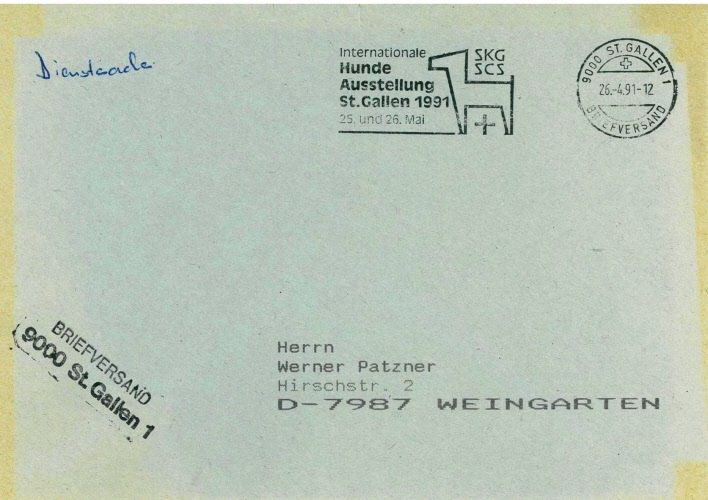 Dienstsache
Internationale
Hunde
Ausstellung
St.Gallen 1991
25. und 26. Mai
SKG
SCS
9000 ST. GALLEN 1
26.-4.91-12
BRIEFVERSAND
BRIEFVERSAND
9000 St. Gallen 1
Herrn
Werner Patzner
Hirschstr. 2
D-7987 WEINGARTEN